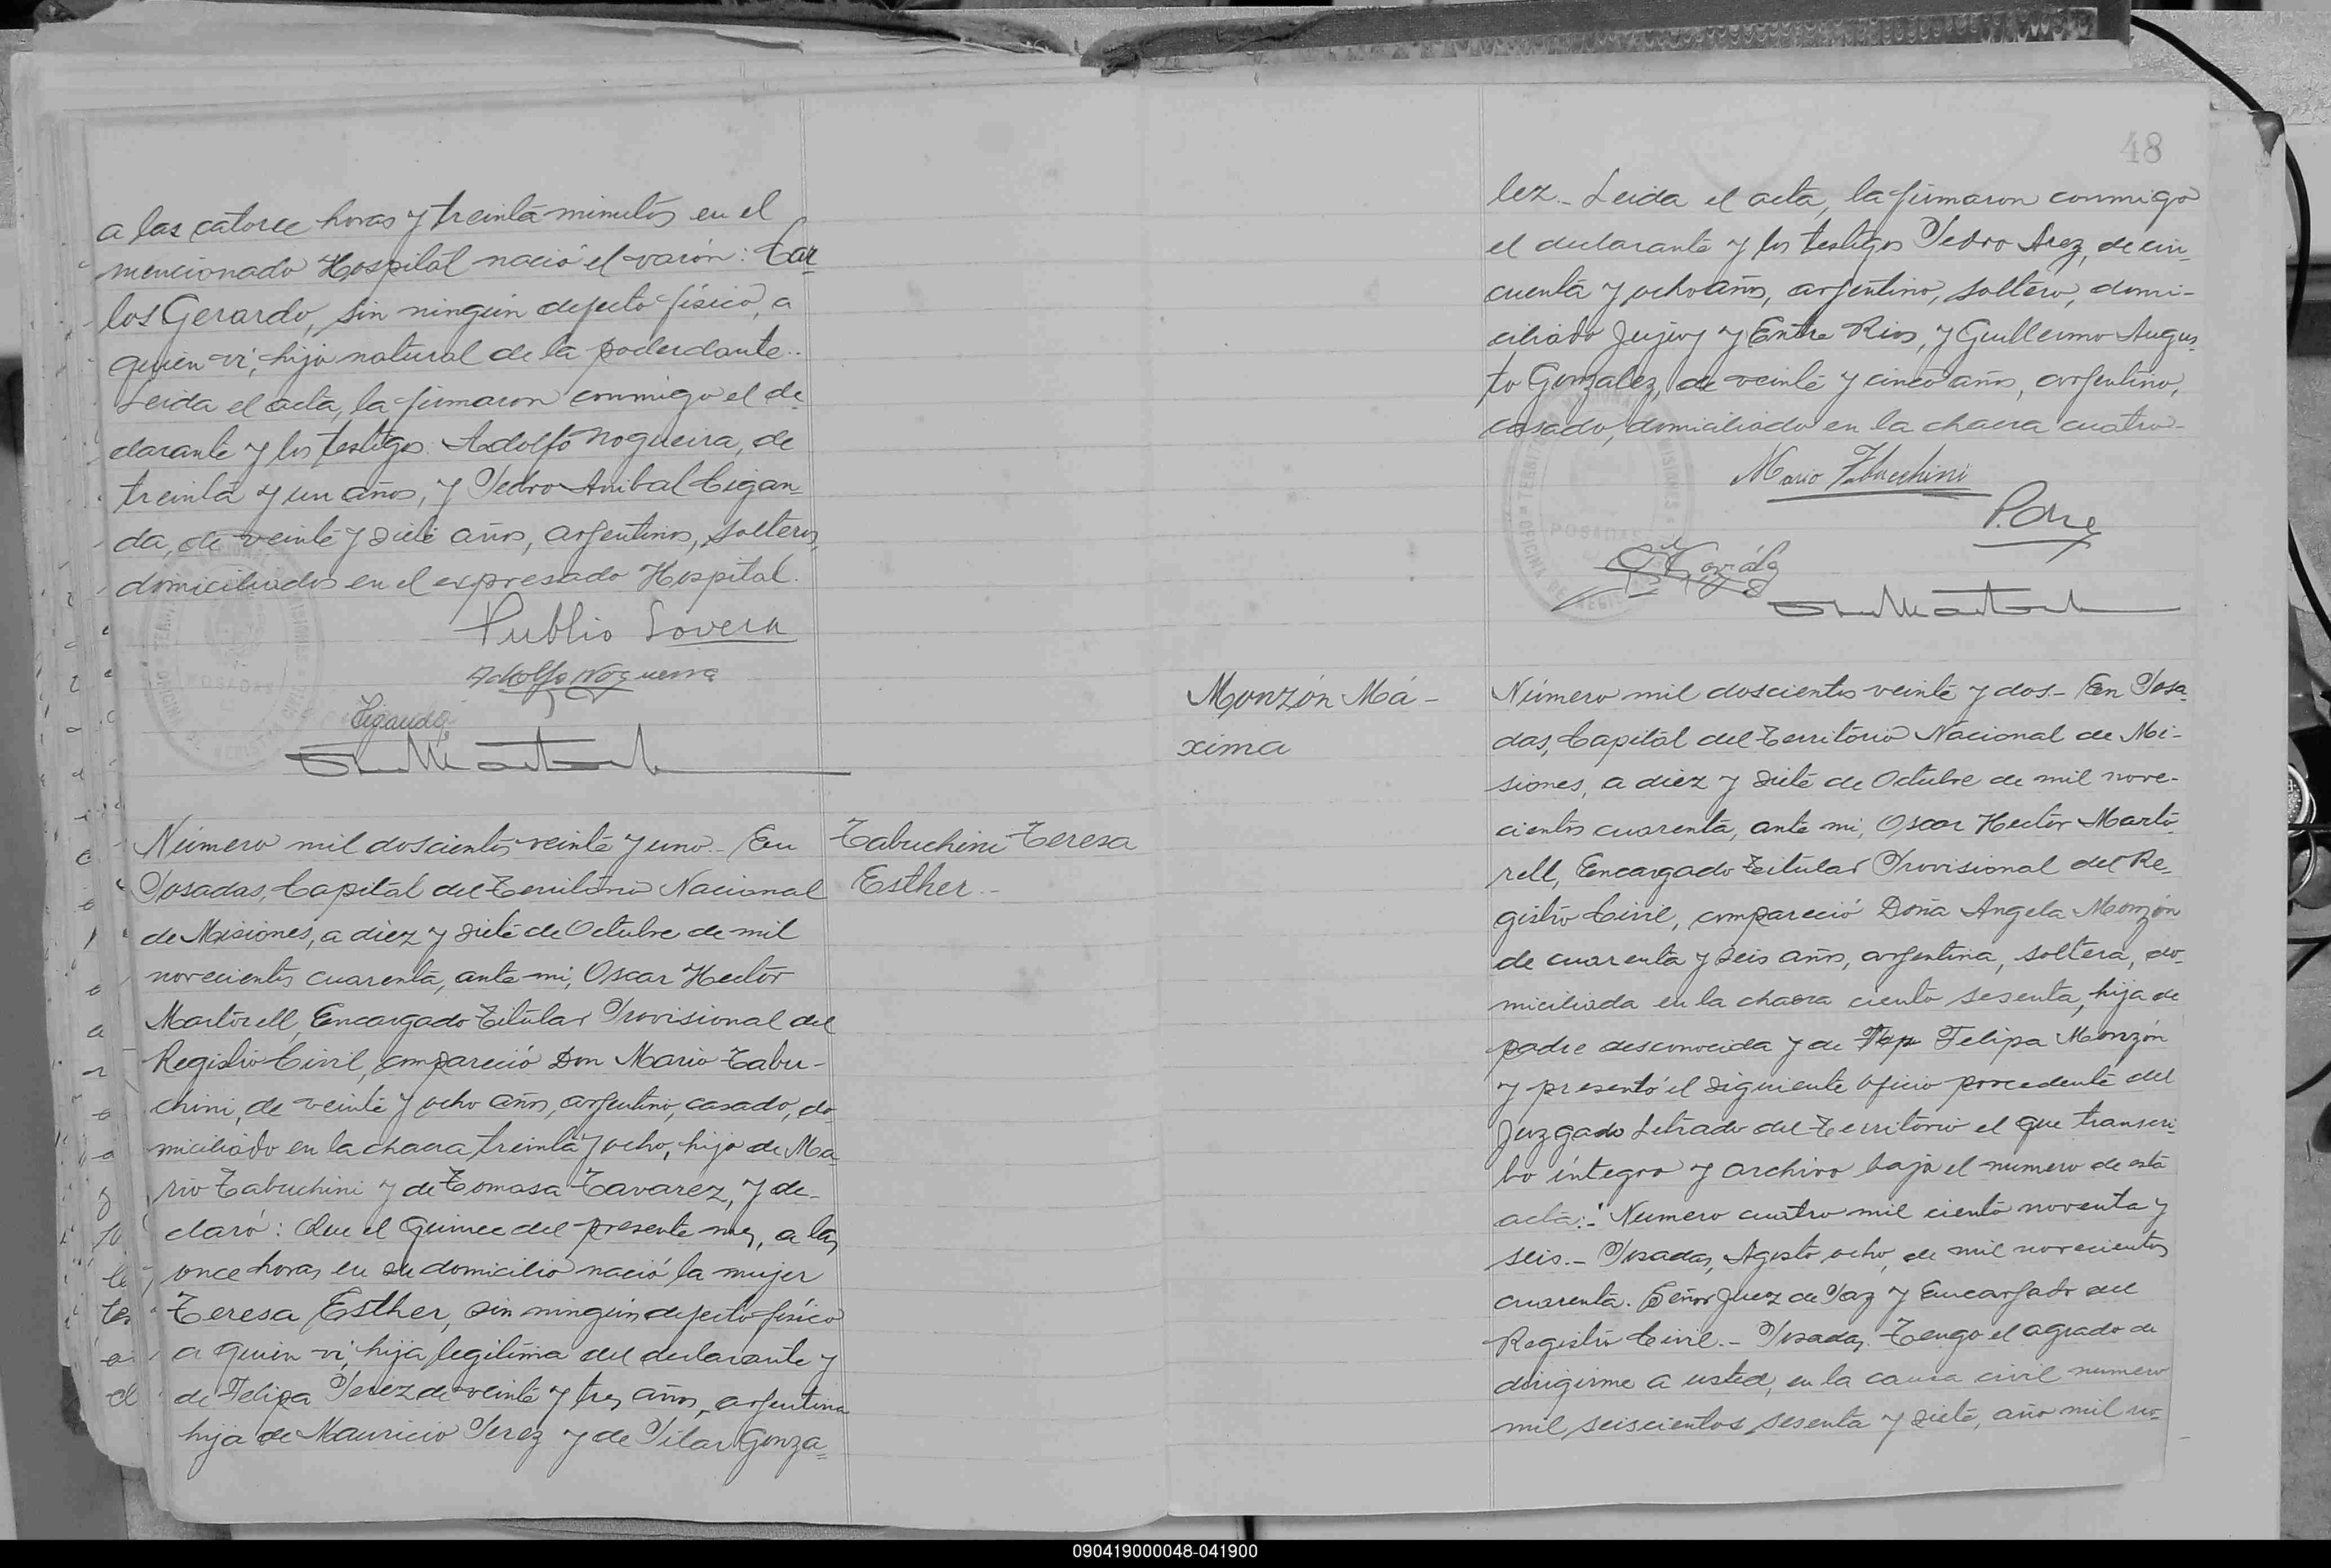 a las catorce horas y treinta minutos en el
mencionado Hospital nació el varón: Car
los Gerardo, sin ningún defecto físico, a
quien vi, hijo natural de la poderdante.-
Leida el acta, la firmaron conmigo el de
clarante y los testigos Adolfo Nogueira, de
treinta y un años, y Pedro Anibal Cigan-
da, de veinte y siete años, argentinos, solteros,
domiciliados en el expresado Hospital.
Publio Lovera
Adolfo Nogueira
Ciganda
Número mil doscientos veinte y uno.- En
Posadas, Capital del Territorio Nacional
de Misiones, a diez y siete de Octubre de mil
novecientos cuarenta, ante mi, Oscar Hector
Martorell, Encargado Titular Provisional del
Registro Civil, compareció Don Mario Tabu-
chini, de veinte y ocho años, argentino, casado, do-
miciliado en la chacra treinta y ocho, hijo de Ma-
rio Tabuchini y de Tomasa Tavarez, y de-
claró: Que el quince del presente mes, a las
once horas en su domicilio nació la mujer
Teresa Esther, sin ningún defecto físico
a quien vi, hija legitima del declarante y
de Felipa Perez de veinte y tres años, argentina
hija de Mauricio Perez y de Pilar Gonza-
Tabuchini Teresa
Esther.-
48
lez.- Leida el acta, la firmaron conmigo
el declarante y los testigos Pedro Arez, de cin-
cuenta y ocho años, argentino, soltero, domi-
ciliado Jujuy y Entre Rios, y Guillermo Augus-
to Gonzalez, de veinte y cinco años, argentino,
casado, domiciliado en la chacra cuatro-
Mario Tabucchini
POSADAS
Monzón Má-
xima
Número mil doscientos veinte y dos.- En Posa-
das, Capital del Territorio Nacional de Mi-
siones, a diez y siete de Octubre de mil nove-
cientos cuarenta, ante mi, Oscar Hector Marto-
rell, Encargado Titular Provisional del Re-
gistro Civil, compareció Doña Angela Monzón
de cuarenta y seis años, argentina, soltera, do-
miciliada en la chacra ciento sesenta, hija de
padre desconocida y de Felipa Monzón
y presentó el siguiente oficio procedente del
Juzgado Letrado del Territorio el que transcri-
bo íntegro y archivo bajo el numero de esta
acta:" Numero cuatro mil ciento noventa y
seis.- Posadas, Agosto ocho, de mil novecientos
cuarenta. Señor Juez de Paz y Encargado del
Registro Civil.- Posadas, Tengo el agrado de
dirigirme a usted, en la causa civil numero
mil seiscientos sesenta y siete, año mil no-
090419000048-041900